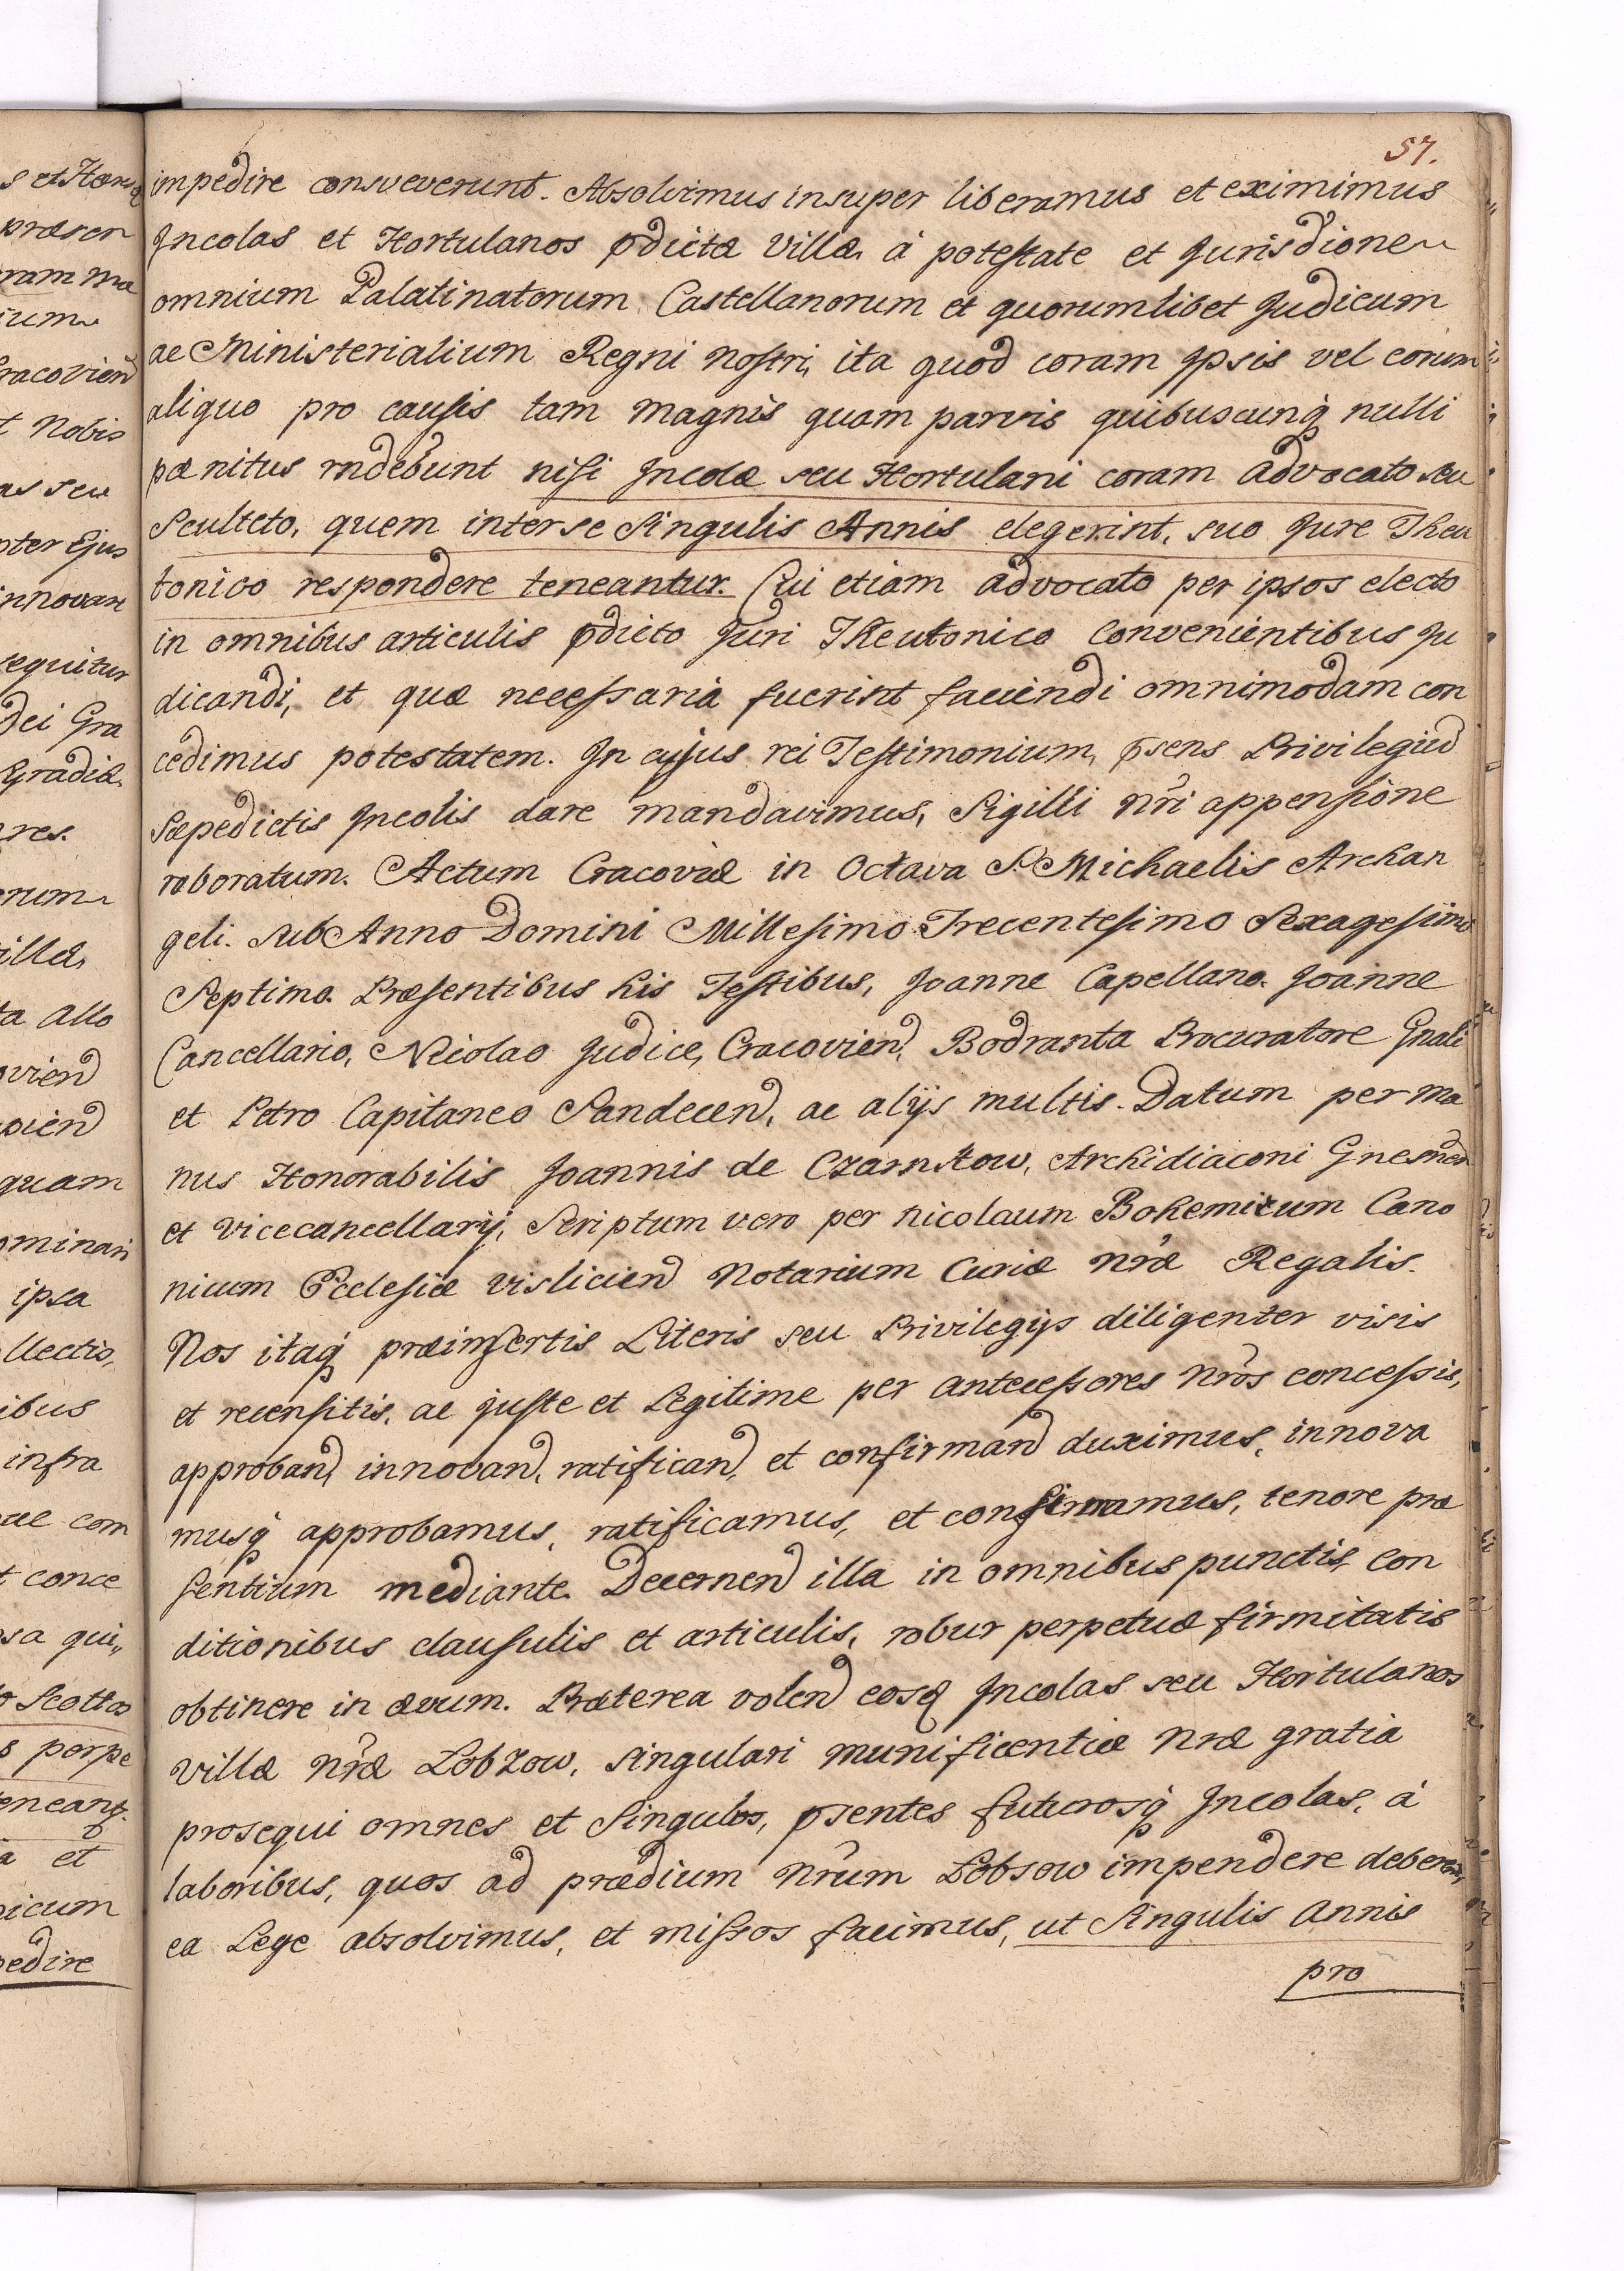 57.
impedire consueverunt. Absolvimus insuper liberamus et eximimus
Incolas et Hortulanos pdictæ Villæ à potestate et Jurisdione
omnium Palatinatorum Castellanorum et quorumlibet Judicum
ac Ministerialium Regni nostri, ita quod coram Ipsis vel eorum
aliquo pro causis tam magnis quam parvis quibuscunq nulli
pænitus rndebunt nisi Incolæ seu Hortulani coram advocato seu
Sculteto, quem inter se Singulis Annis elegerint, suo Jure Theu
tonico respondere teneantur. Cui etiam advocato per ipsos electo
in omnibus articulis pdicto Juri Theutonico convenientibus Ju
dicandi, et quæ necessaria fuerint faciendi omnimodam con
cedimus potestatem. In cujus rei Testimonium, psens Privilegiũ
Sæpedictis Incolis dare mandavimus, Sigilli nri appensione
roboratum. Actum Cracoviæ in Octava S. Michaelis Archan
geli. sub Anno Domini Millesimo Trecentesimo Sexagesimo
Septimo. Præsentibus his Testibus, Joanne Capellano. Joanne
Cancellario, Nicolao Judice, Cracovien, Bodranta Procuratore Gnali
et Petro Capitaneo Sandecen, ac alijs multis. Datum per ma
nus Honorabilis Joannis de Czarnkow, Archidiaconi Gnesnen
et vicecancellarij, Scriptum vero per nicolaum Bohemicum Cano
nicum Ecclesiæ vislicien Notarium Curiæ nræ Regalis.
Nos itaq præinsertis Literis seu Privilegijs diligenter visis
et recensitis, ac juste et Legitime per antecessores nros concessis,
approban, innovan, ratifican, et confirman duximus, innova
musq approbamus, ratificamus, et confirmamus, tenore præ
sentium mediante. Decernen illa in omnibus punctis, con
ditionibus clausulis et articulis, robur perpetuæ firmitatis
obtinere in ævum. Præterea volen eosd Incolas seu Hortulanos
villæ nræ Lobzow, singulari munificentiæ nræ gratia
prosequi omnes et Singulos, psentes futurosq Incolas, à
laboribus, quos ad prædium nrum Lobsow impendere deberent,
ea Lege absolvimus, et missos facimus, ut Singulis annis
pro